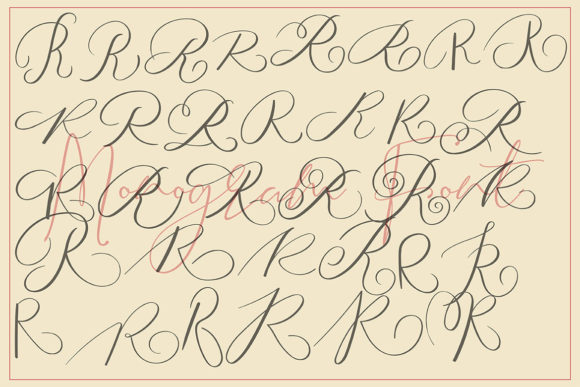 R R R R R R R R
R R R R R R R
Monogram Font
R R R R R R
R R R R R R
R R R R R R